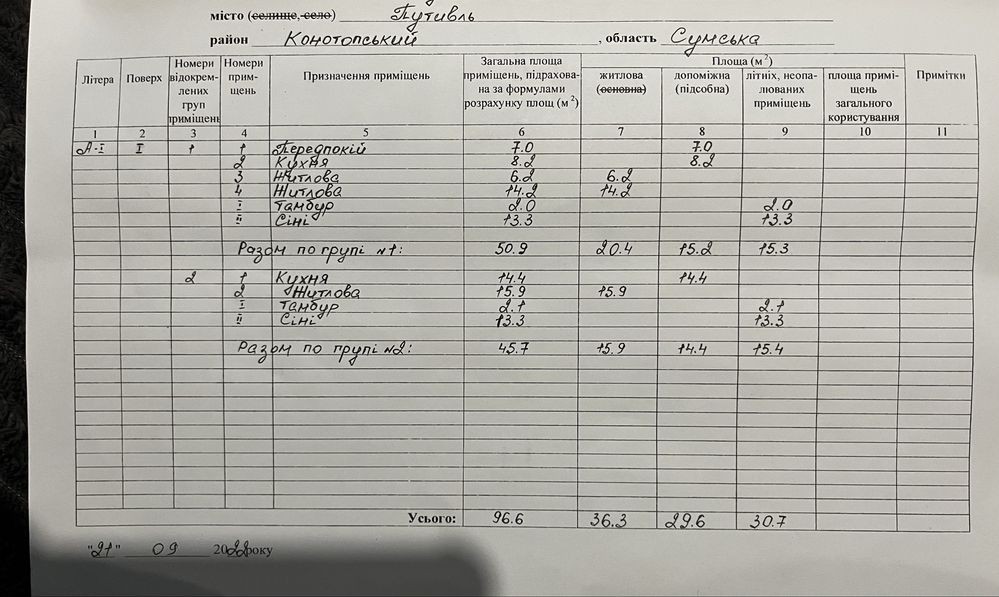 місто (селище, село) Путивль
район Конотопський, область Сумська
Літера Поверх Номери відокрем-лених груп приміщень Номери прим-щень Призначення приміщень Загальна площа приміщень, підрахова-на за формулами розрахунку площ (м²) Площа (м²) Примітки
житлова (основна) допоміжна (підсобна) літніх, неопа-люваних приміщень площа примі-щень загального користування
1 2 3 4 5 6 7 8 9 10 11
А-І І 1 1 Передпокій 7.0 7.0
2 Кухня 8.2 8.2
3 Житлова 6.2 6.2
4 Житлова 14.2 14.2
І Тамбур 2.0 2.0
ІІ Сіні 13.3 13.3
Разом по групі №1: 50.9 20.4 15.2 15.3
2 1 Кухня 14.4 14.4
2 Житлова 15.9 15.9
І Тамбур 2.1 2.1
ІІ Сіні 13.3 13.3
Разом по групі №2: 45.7 15.9 14.4 15.4
Усього: 96.6 36.3 29.6 30.7
"21" 09 2022 року